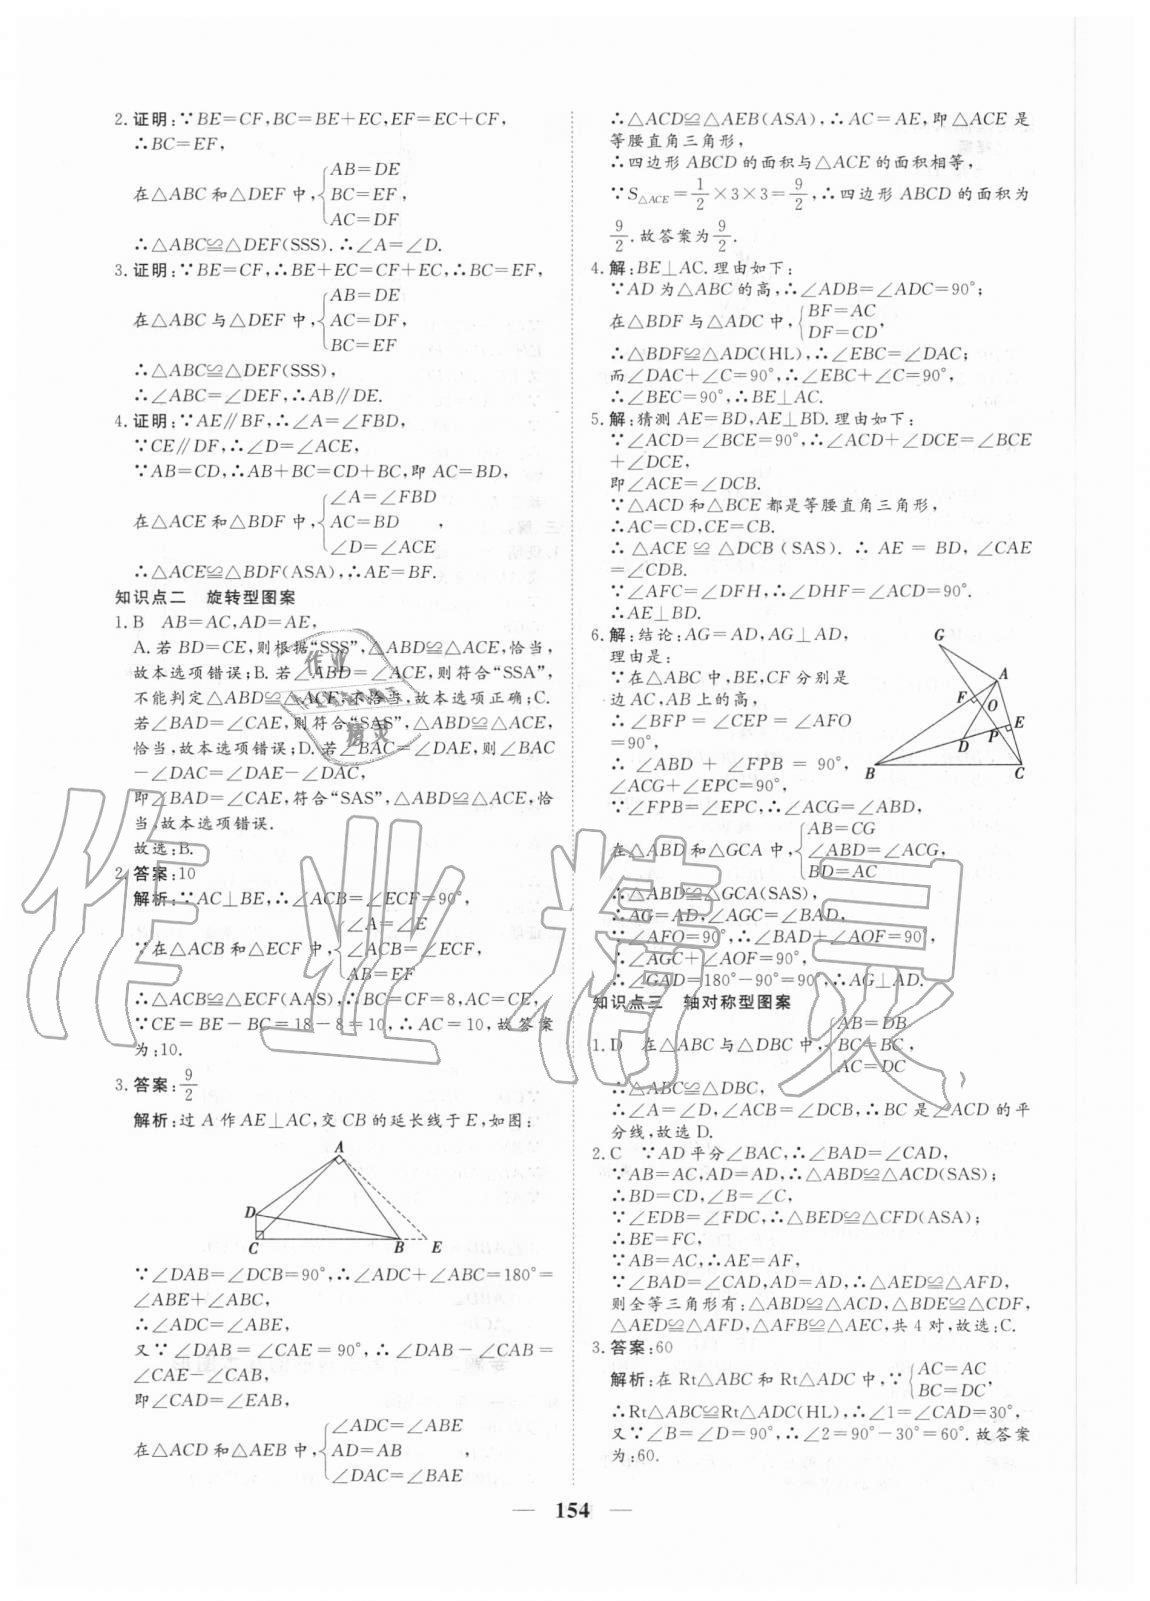 2.证明:∵BE=CF,BC=BE+EC,EF=EC+CF,
∴BC=EF,
在△ABC和△DEF中,{AB=DE
BC=EF,
AC=DF
∴△ABC≌△DEF(SSS).∴∠A=∠D.
3.证明:∵BE=CF,∴BE+EC=CF+EC,∴BC=EF,
在△ABC与△DEF中,{AB=DE
AC=DF,
BC=EF
∴△ABC≌△DEF(SSS),
∴∠ABC=∠DEF,∴AB∥DE.
4.证明:∵AE∥BF,∴∠A=∠FBD,
∵CE∥DF,∴∠D=∠ACE,
∵AB=CD,∴AB+BC=CD+BC,即AC=BD,
在△ACE和△BDF中,{∠A=∠FBD
AC=BD,
∠D=∠ACE
∴△ACE≌△BDF(ASA),∴AE=BF.
知识点二 旋转型图案
1.B AB=AC,AD=AE,
A.若BD=CE,则根据“SSS”,△ABD≌△ACE,恰当,
故本选项错误;B.若∠ABD=∠ACE,则符合“SSA”,
不能判定△ABD≌△ACE,不恰当,故本选项正确;C.
若∠BAD=∠CAE,则符合“SAS”,△ABD≌△ACE,
恰当,故本选项错误;D.若∠BAC=∠DAE,则∠BAC
-∠DAC=∠DAE-∠DAC,
即∠BAD=∠CAE,符合“SAS”,△ABD≌△ACE,恰
当,故本选项错误.
故选:B.
2.答案:10
解析:∵AC⊥BE,∴∠ACB=∠ECF=90°,
∵在△ACB和△ECF中,{∠A=∠E
∠ACB=∠ECF,
AB=EF
∴△ACB≌△ECF(AAS),∴BC=CF=8,AC=CE,
∵CE=BE-BC=18-8=10,∴AC=10,故答案
为:10.
3.答案:9/2
解析:过A作AE⊥AC,交CB的延长线于E,如图:
A
D
C B E
∵∠DAB=∠DCB=90°,∴∠ADC+∠ABC=180°=
∠ABE+∠ABC,
∴∠ADC=∠ABE,
又∵∠DAB=∠CAE=90°,∴∠DAB-∠CAB=
∠CAE-∠CAB,
即∠CAD=∠EAB,
在△ACD和△AEB中,{∠ADC=∠ABE
AD=AB,
∠DAC=∠BAE
∴△ACD≌△AEB(ASA),∴AC=AE,即△ACE是
等腰直角三角形,
∴四边形ABCD的面积与△ACE的面积相等,
∵S△ACE=1/2×3×3=9/2,∴四边形ABCD的面积为
9/2.故答案为9/2.
4.解:BE⊥AC.理由如下:
∵AD为△ABC的高,∴∠ADB=∠ADC=90°;
在△BDF与△ADC中,{BF=AC
DF=CD,
∴△BDF≌△ADC(HL),∴∠EBC=∠DAC;
而∠DAC+∠C=90°,∴∠EBC+∠C=90°,
∴∠BEC=90°,∴BE⊥AC.
5.解:猜测AE=BD,AE⊥BD.理由如下:
∵∠ACD=∠BCE=90°,∴∠ACD+∠DCE=∠BCE
+∠DCE,
即∠ACE=∠DCB.
∵△ACD和△BCE都是等腰直角三角形,
∴AC=CD,CE=CB.
∴△ACE≌△DCB(SAS).∴AE=BD,∠CAE
=∠CDB.
∵∠AFC=∠DFH,∴∠DHF=∠ACD=90°.
∴AE⊥BD.
6.解:结论:AG=AD,AG⊥AD,
理由是:
∵在△ABC中,BE,CF分别是
边AC,AB上的高,
∴∠BFP=∠CEP=∠AFO
=90°,
∴∠ABD+∠FPB=90°,
∠ACG+∠EPC=90°,
G
A
F O
E
D P
B C
∵∠FPB=∠EPC,∴∠ACG=∠ABD,
在△ABD和△GCA中,{AB=CG
∠ABD=∠ACG,
BD=AC
∴△ABD≌△GCA(SAS),
∴AG=AD,∠AGC=∠BAD,
∵∠AFO=90°,∴∠BAD+∠AOF=90°,
∴∠AGC+∠AOF=90°,
∴∠GAD=180°-90°=90°,∴AG⊥AD.
知识点三 轴对称型图案
1.D 在△ABC与△DBC中,{AB=DB
BC=BC,
AC=DC
∴△ABC≌△DBC,
∴∠A=∠D,∠ACB=∠DCB,∴BC是∠ACD的平
分线,故选D.
2.C ∵AD平分∠BAC,∴∠BAD=∠CAD,
∵AB=AC,AD=AD,∴△ABD≌△ACD(SAS);
∴BD=CD,∠B=∠C,
∵∠EDB=∠FDC,∴△BED≌△CFD(ASA);
∴BE=FC,
∵AB=AC,∴AE=AF,
∵∠BAD=∠CAD,AD=AD,∴△AED≌△AFD,
则全等三角形有:△ABD≌△ACD,△BDE≌△CDF,
△AED≌△AFD,△AFB≌△AEC,共4对,故选:C.
3.答案:60
解析:在Rt△ABC和Rt△ADC中,∵{AC=AC
BC=DC,
∴Rt△ABC≌Rt△ADC(HL),∴∠1=∠CAD=30°,
又∵∠B=∠D=90°,∴∠2=90°-30°=60°.故答案
为:60.
— 154 —
作业精灵
作业
精灵